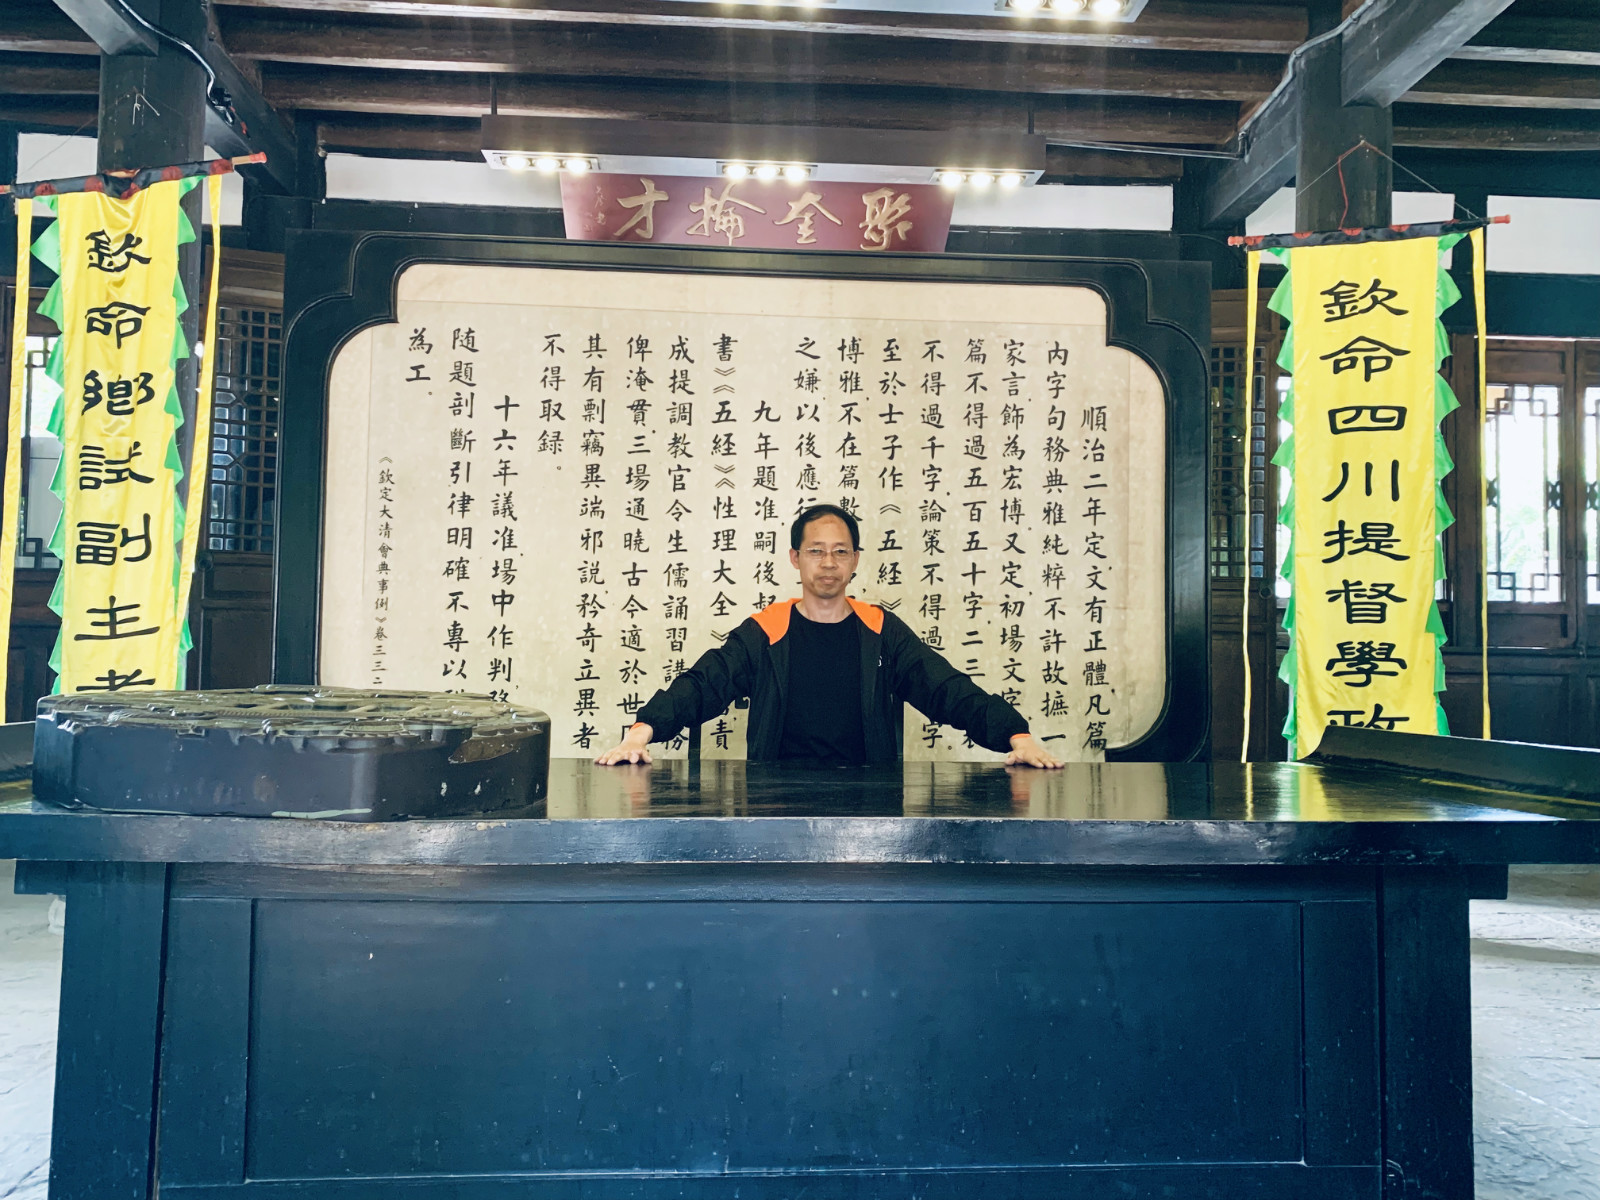 聚奎掄才
欽命四川提督學政
順治二年定,文有正體,凡篇
內字句務典雅純粹不許故摭一
家言,飾為宏博,又定,初場文字,
篇不得過五百五十字,二三
不得過千字,論策不得過 字。
至於士子作《五經》
博雅,不在篇數
之嫌,以後應行
九年題准,嗣後督
書》《五經》《性理大全》 責
成提調教官令生儒誦習講 務
俾淹貫,三場通曉古今適於世
其有剽竊異端邪説,矜奇立異者
不得取録。
十六年議准,場中作判,務
随題剖斷引律明確不專以
為工。
《欽定大清會典事例》卷三三二
欽命鄉試副主考